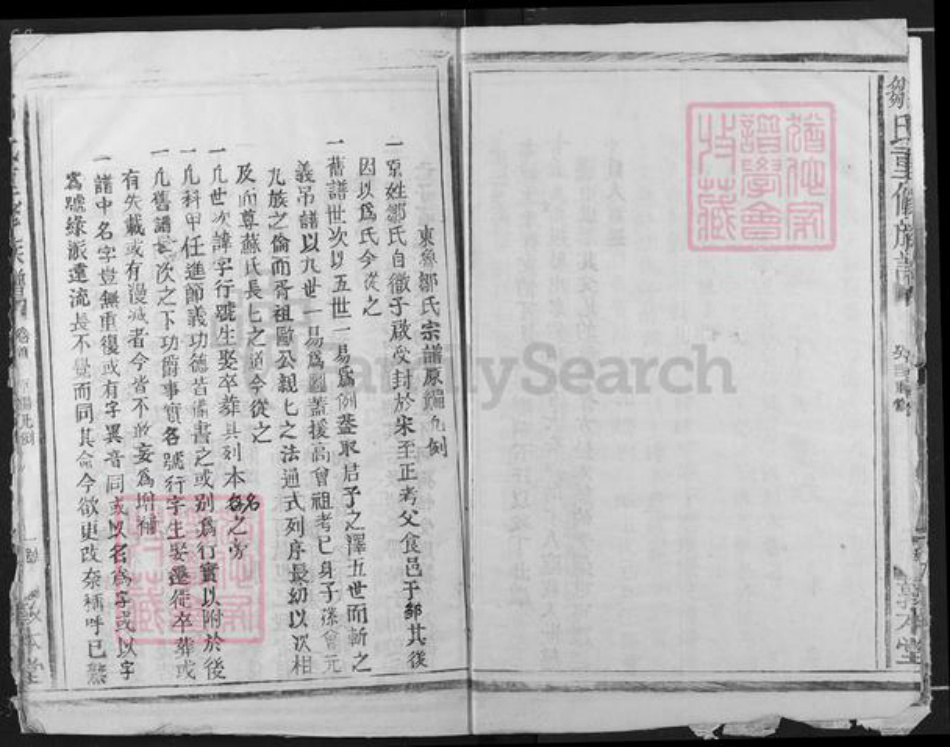 鄒氏重修族譜
敦本堂
東魯鄒氏宗譜原編凡例
一原姓鄒氏自微子啟受封於宋至正考父食邑于鄒其後
因以為氏今從之
一舊譜世次以五世一易為例蓋取君子之澤五世而斬之
義吊譜以九世一易為圖蓋援高曾祖考已身子孫曾元
九族之倫而胥祖歐公親七之法通式列序長幼以次相
及而尊蘇氏長七之道今從之
一凡世次諱字行號生娶卒葬具列本名之旁
一凡科甲任進節義功德皆備書之或別為行實以附於後
一凡舊譜世次之下功爵事實各號行字生娶遷徙卒葬或
有失載或有漫滅者今皆不敢妄為增補
一譜中名字豈無重復或有字異音同或以名為字或以字
為號緣派遠流長不覺而同其命今欲更改奈稱呼已繁
族譜
卷首
凡例
敦本堂
FamilySearch
猶他家譜學會收藏